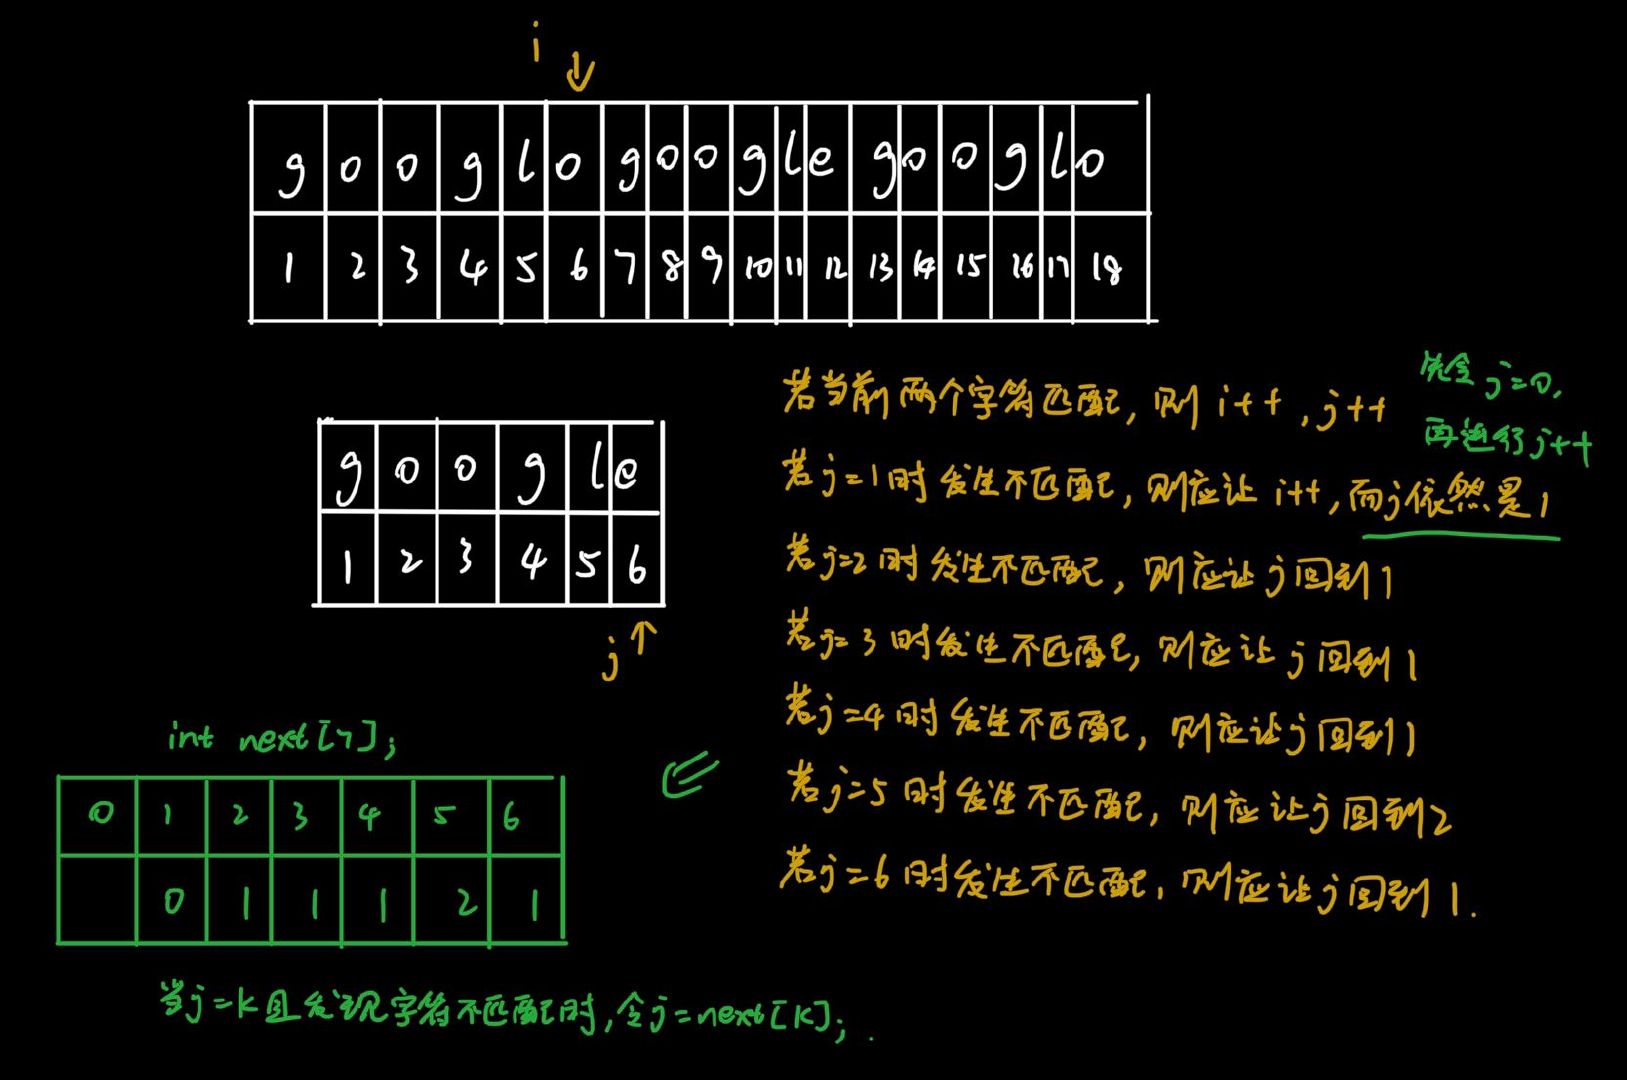 i
g o o g l o g o o g l e g o o g l o
1 2 3 4 5 6 7 8 9 10 11 12 13 14 15 16 17 18
先令j=0,
再进行j++
若当前两个字符匹配,则i++,j++
若j=1时发生不匹配,则应让i++,而j依然是1
若j=2时发生不匹配,则应让j回到1
若j=3时发生不匹配,则应让j回到1
若j=4时发生不匹配,则应让j回到1
若j=5时发生不匹配,则应让j回到2
若j=6时发生不匹配,则应让j回到1.
g o o g l e
1 2 3 4 5 6
j
int next[7];
0 1 2 3 4 5 6
0 1 1 1 2 1
当j=k且发现字符不匹配时,令j=next[k];.